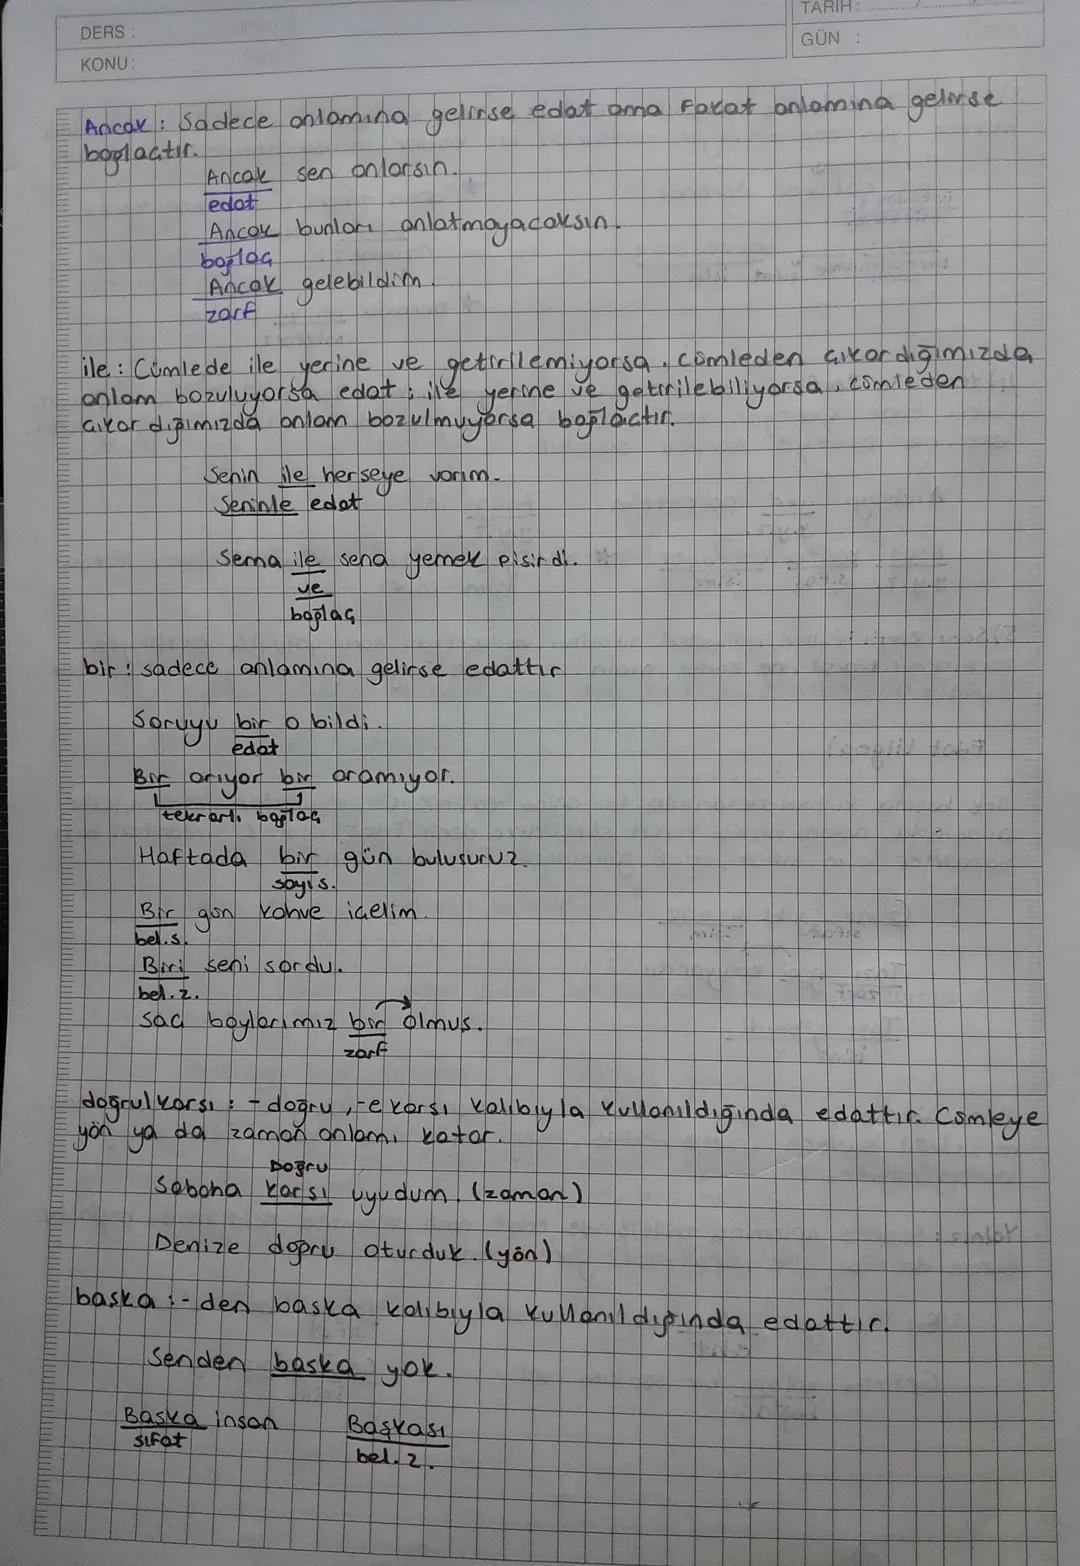 DERS :
TARİH :
GÜN :
KONU:
Ancak : Sadece anlamına gelirse edat ama Fakat anlamına gelirse
bağlaçtır.
Ancak sen anlarsın.
edat
Ancak bunları anlatmayacaksın.
bağlaç
Ancak gelebildim.
zarf
ile : Cümlede ile yerine ve getirilemiyorsa, cümleden çıkardığımızda
anlam bozuluyorsa edat ; ile yerine ve getirilebiliyorsa, cümleden
çıkardığımızda anlam bozulmuyorsa bağlaçtır.
Senin ile herseye varım.
Seninle edat
Sema ile sena yemek pisirdi.
ve
bağlaç
bir : sadece anlamına gelirse edattır
Soruyu bir o bildi.
edat
Bir arıyor bir aramıyor.
tekrarlı bağlaç
Haftada bir gün buluşuruz.
sayı s.
Bir gün kahve içelim.
bel.s.
Biri seni sordu.
bel.z.
saç boylarımız bir olmus.
zarf
doğrulkarsı : -doğru, -e karsı kalıbıyla kullanıldığında edattır. Cümleye
yön ya da zaman anlamı katar.
Doğru
Sabaha karsı uyudum. (zaman)
Denize doğru oturduk. (yön)
baska : -den baska kalıbıyla kullanıldığında edattır.
Senden baska yok.
Baska insan Başkası
sıfat bel.z.